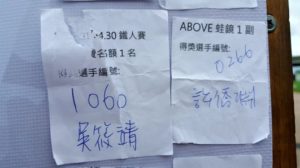 4.30 鐵人賽
名額1名
選手編號:
1060
吳筱靖
ABOVE 蛙鏡1副
得獎選手編號:
0266